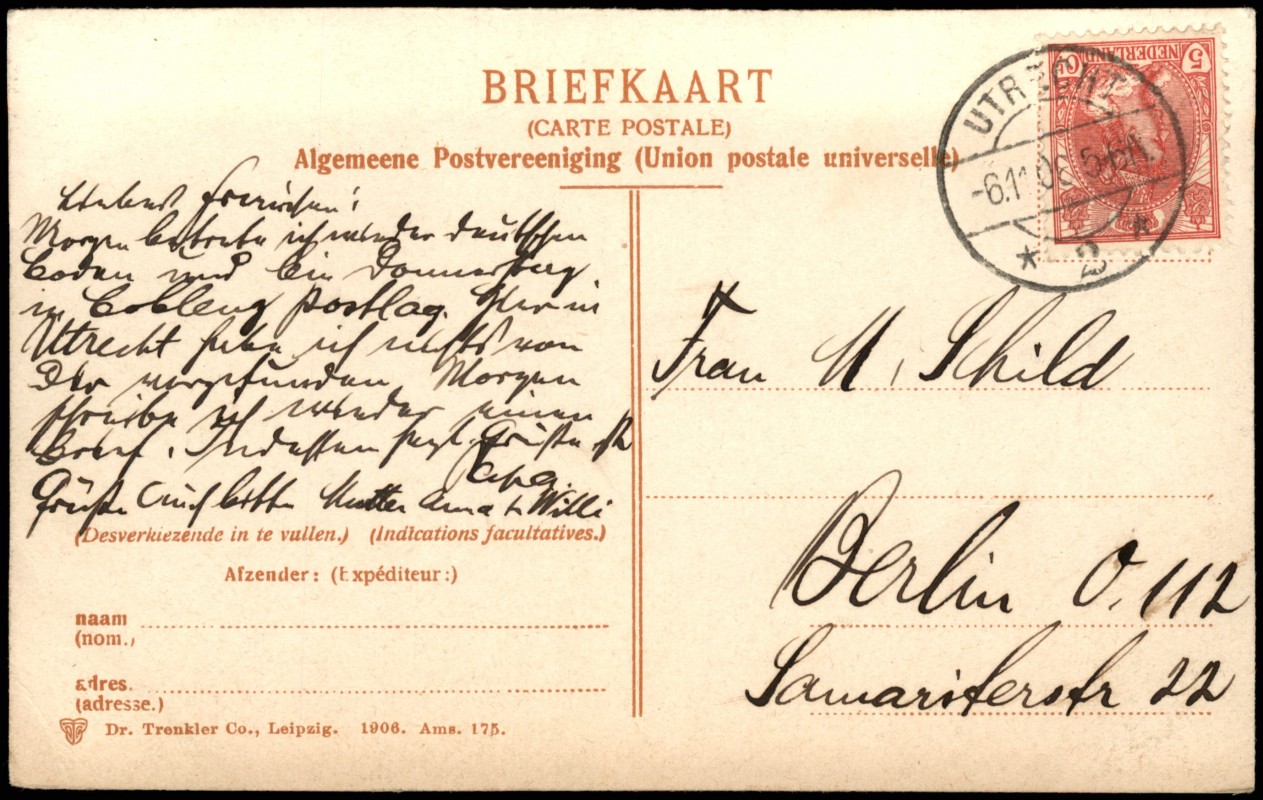 BRIEFKAART
(CARTE POSTALE)
Algemeene Postvereeniging (Union postale universelle)
NEDERLAND
5
UTRECHT
-6.11.06 5-6N.
* 2 *
Morgen betrete ich wieder deutschen
Boden und bin Donnerstag
in Coblenz postlag. Hier in
Utrecht habe ich nichts von
Dir vorgefunden. Morgen
schreibe ich wieder einen
Brief. Indessen herzl. Grüße
Grüße auch bitte Mutter Willi
(Desverkiezende in te vullen.) (Indications facultatives.)
Afzender: (Expéditeur:)
naam
(nom.)
adres.
(adresse.)
Dr. Trenkler Co., Leipzig. 1906. Ams. 175.
Frau M. Schild
Berlin O. 112
Samariterstr 22